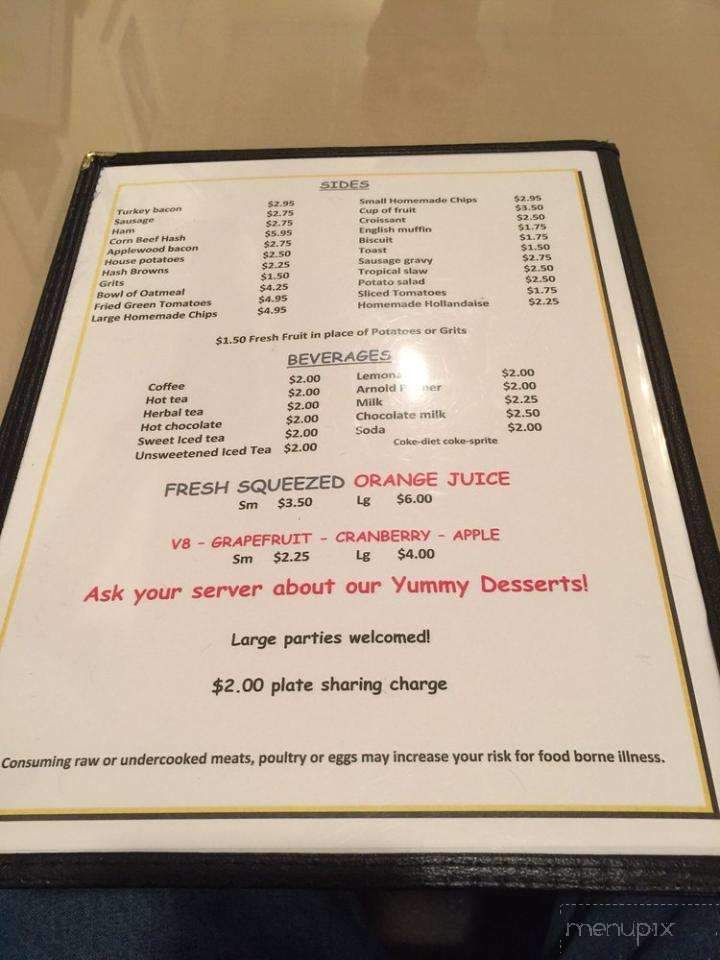 SIDES
Turkey bacon $2.95
Sausage $2.75
Ham $2.75
Corn Beef Hash $5.95
Applewood bacon $2.75
House potatoes $2.50
Hash Browns $2.25
Grits $1.50
Bowl of Oatmeal $4.25
Fried Green Tomatoes $4.95
Large Homemade Chips $4.95
Small Homemade Chips $2.95
Cup of fruit $3.50
Croissant $2.50
English muffin $1.75
Biscuit $1.75
Toast $1.50
Sausage gravy $2.75
Tropical slaw $2.50
Potato salad $2.50
Sliced Tomatoes $1.75
Homemade Hollandaise $2.25
$1.50 Fresh Fruit in place of Potatoes or Grits
BEVERAGES
Coffee $2.00
Hot tea $2.00
Herbal tea $2.00
Hot chocolate $2.00
Sweet Iced tea $2.00
Unsweetened Iced Tea $2.00
$2.00
Arnold $2.00
Milk $2.25
Chocolate milk $2.50
Soda $2.00
Coke-diet coke-sprite
FRESH SQUEEZED ORANGE JUICE
Sm $3.50 Lg $6.00
V8 - GRAPEFRUIT - CRANBERRY - APPLE
Sm $2.25 Lg $4.00
Ask your server about our Yummy Desserts!
Large parties welcomed!
$2.00 plate sharing charge
Consuming raw or undercooked meats, poultry or eggs may increase your risk for food borne illness.
menupix